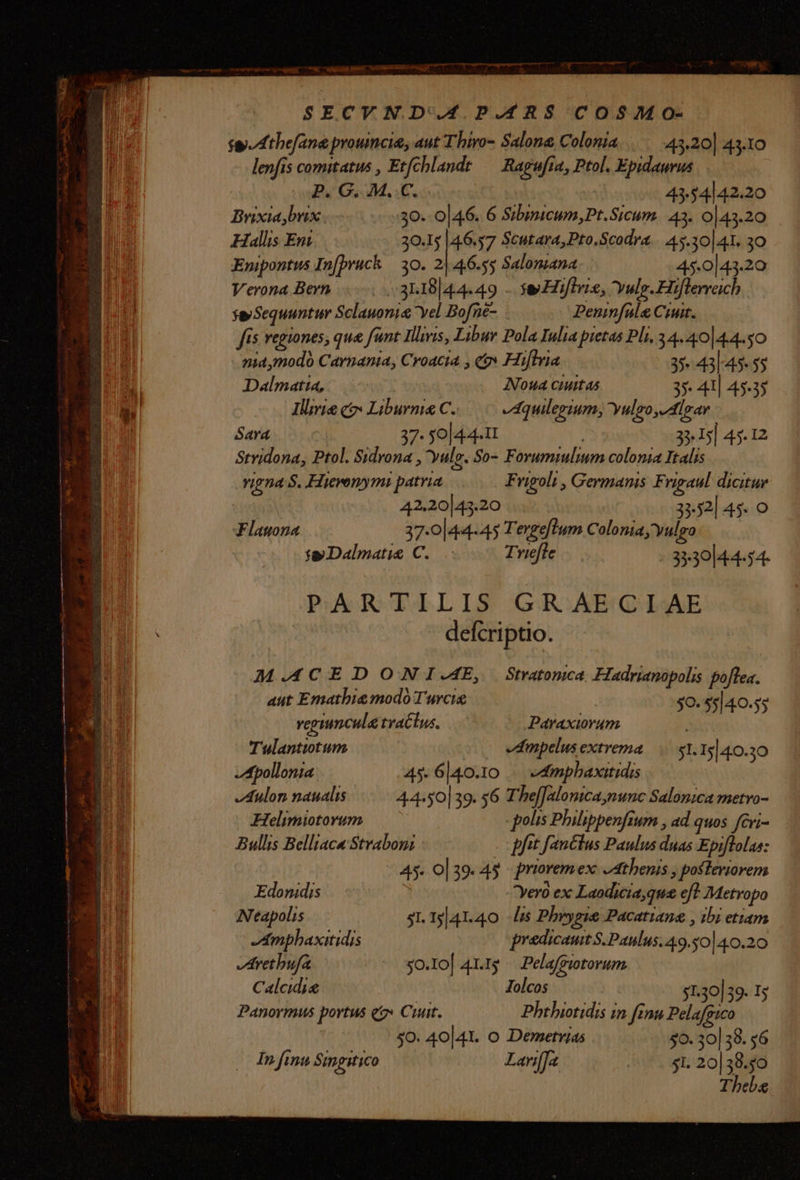 SECVNDA PARS COSMO-
ſeu Atheſanæ prouinciæ, aut Thiro-
lenſis comitatus, Etſchlandt
P. G. M. C.
Brixia, brix 30. 0|46. 6
Hallis Eni 30.15|46.57
Enipontus Inſpruck 30. 2|46.55
Verona Bern 31.18|44.49
ſeu Sequuntur Sclauoniæ vel Boſnē-
ſis regiones, quæ ſunt Illiris, Libur
nia, modò Carnania, Croacia, & Hiſtria
Dalmatia,
Illiriæ & Liburniæ C.
Sara 37. 50|44.11
Stridona, Ptol. Sidrona, vulg. So-
vigna S. Hieronymi patria
42.20|43.20
Flauona 37.0|44.45
ſeu Dalmatiæ C.
Salona Colonia 43.20|43.10
Raguſia, Ptol. Epidaurus
43.54|42.20
Sibinicum, Pt. Sicum 43. 0|43.20
Scutara, Pto. Scodra 45.30|41. 30
Saloniana 45.0|43.20
ſeu Hiſtriæ, vulg. Hiſterreich
Peninſulæ Ciuit.
Pola Iulia pietas Pli. 34.40|44.50
35. 43|45.55
Noua ciuitas 35. 41|45.35
Aquilegium, vulgo, Algar
33.15|45.12
Forumiulium colonia Italis
Frigoli, Germanis Frigaul dicitur
33.52|45. 0
Tergeſtum Colonia, vulgo
Trieſte 33.30|44.54.
PARTILIS GRAECIAE
deſcriptio.
MACEDONIAE,
aut Emathiæ modò Turciæ
regiunculæ tractus.
Tulantiotum
Apollonia 45. 6|40.10
Aulon naualis 44.50|39. 56
Helimiotorum
Bullis Belliaca Straboni
45. 0|39. 45
Edonidis
Neapolis 51.15|41.40
Amphaxitidis
Arethuſa 50.10|41.15
Calcidiæ
Panormus portus & Ciuit.
50. 40|41. 0
In ſinu Singitico
Stratonica Hadrianopolis poſtea.
50. 55|40.55
Paraxiorum
Ampelus extrema 51.15|40.30
Amphaxitidis
Theſſalonica, nunc Salonica metro-
polis Philippenſium, ad quos ſcri-
pſit ſanctus Paulus duas Epiſtolas:
priorem ex Athenis, poſteriorem
verò ex Laodicia, quæ eſt Metropo
lis Phrygiæ Pacatianæ, ibi etiam
prædicauit S. Paulus. 49.50|40.20
Pelaſgiotorum
Iolcos 51.30|39. 15
Phthiotidis in ſinu Pelaſgico
Demetrias 50. 30|38. 56
Lariſſa 51. 20|38.50
Thebæ